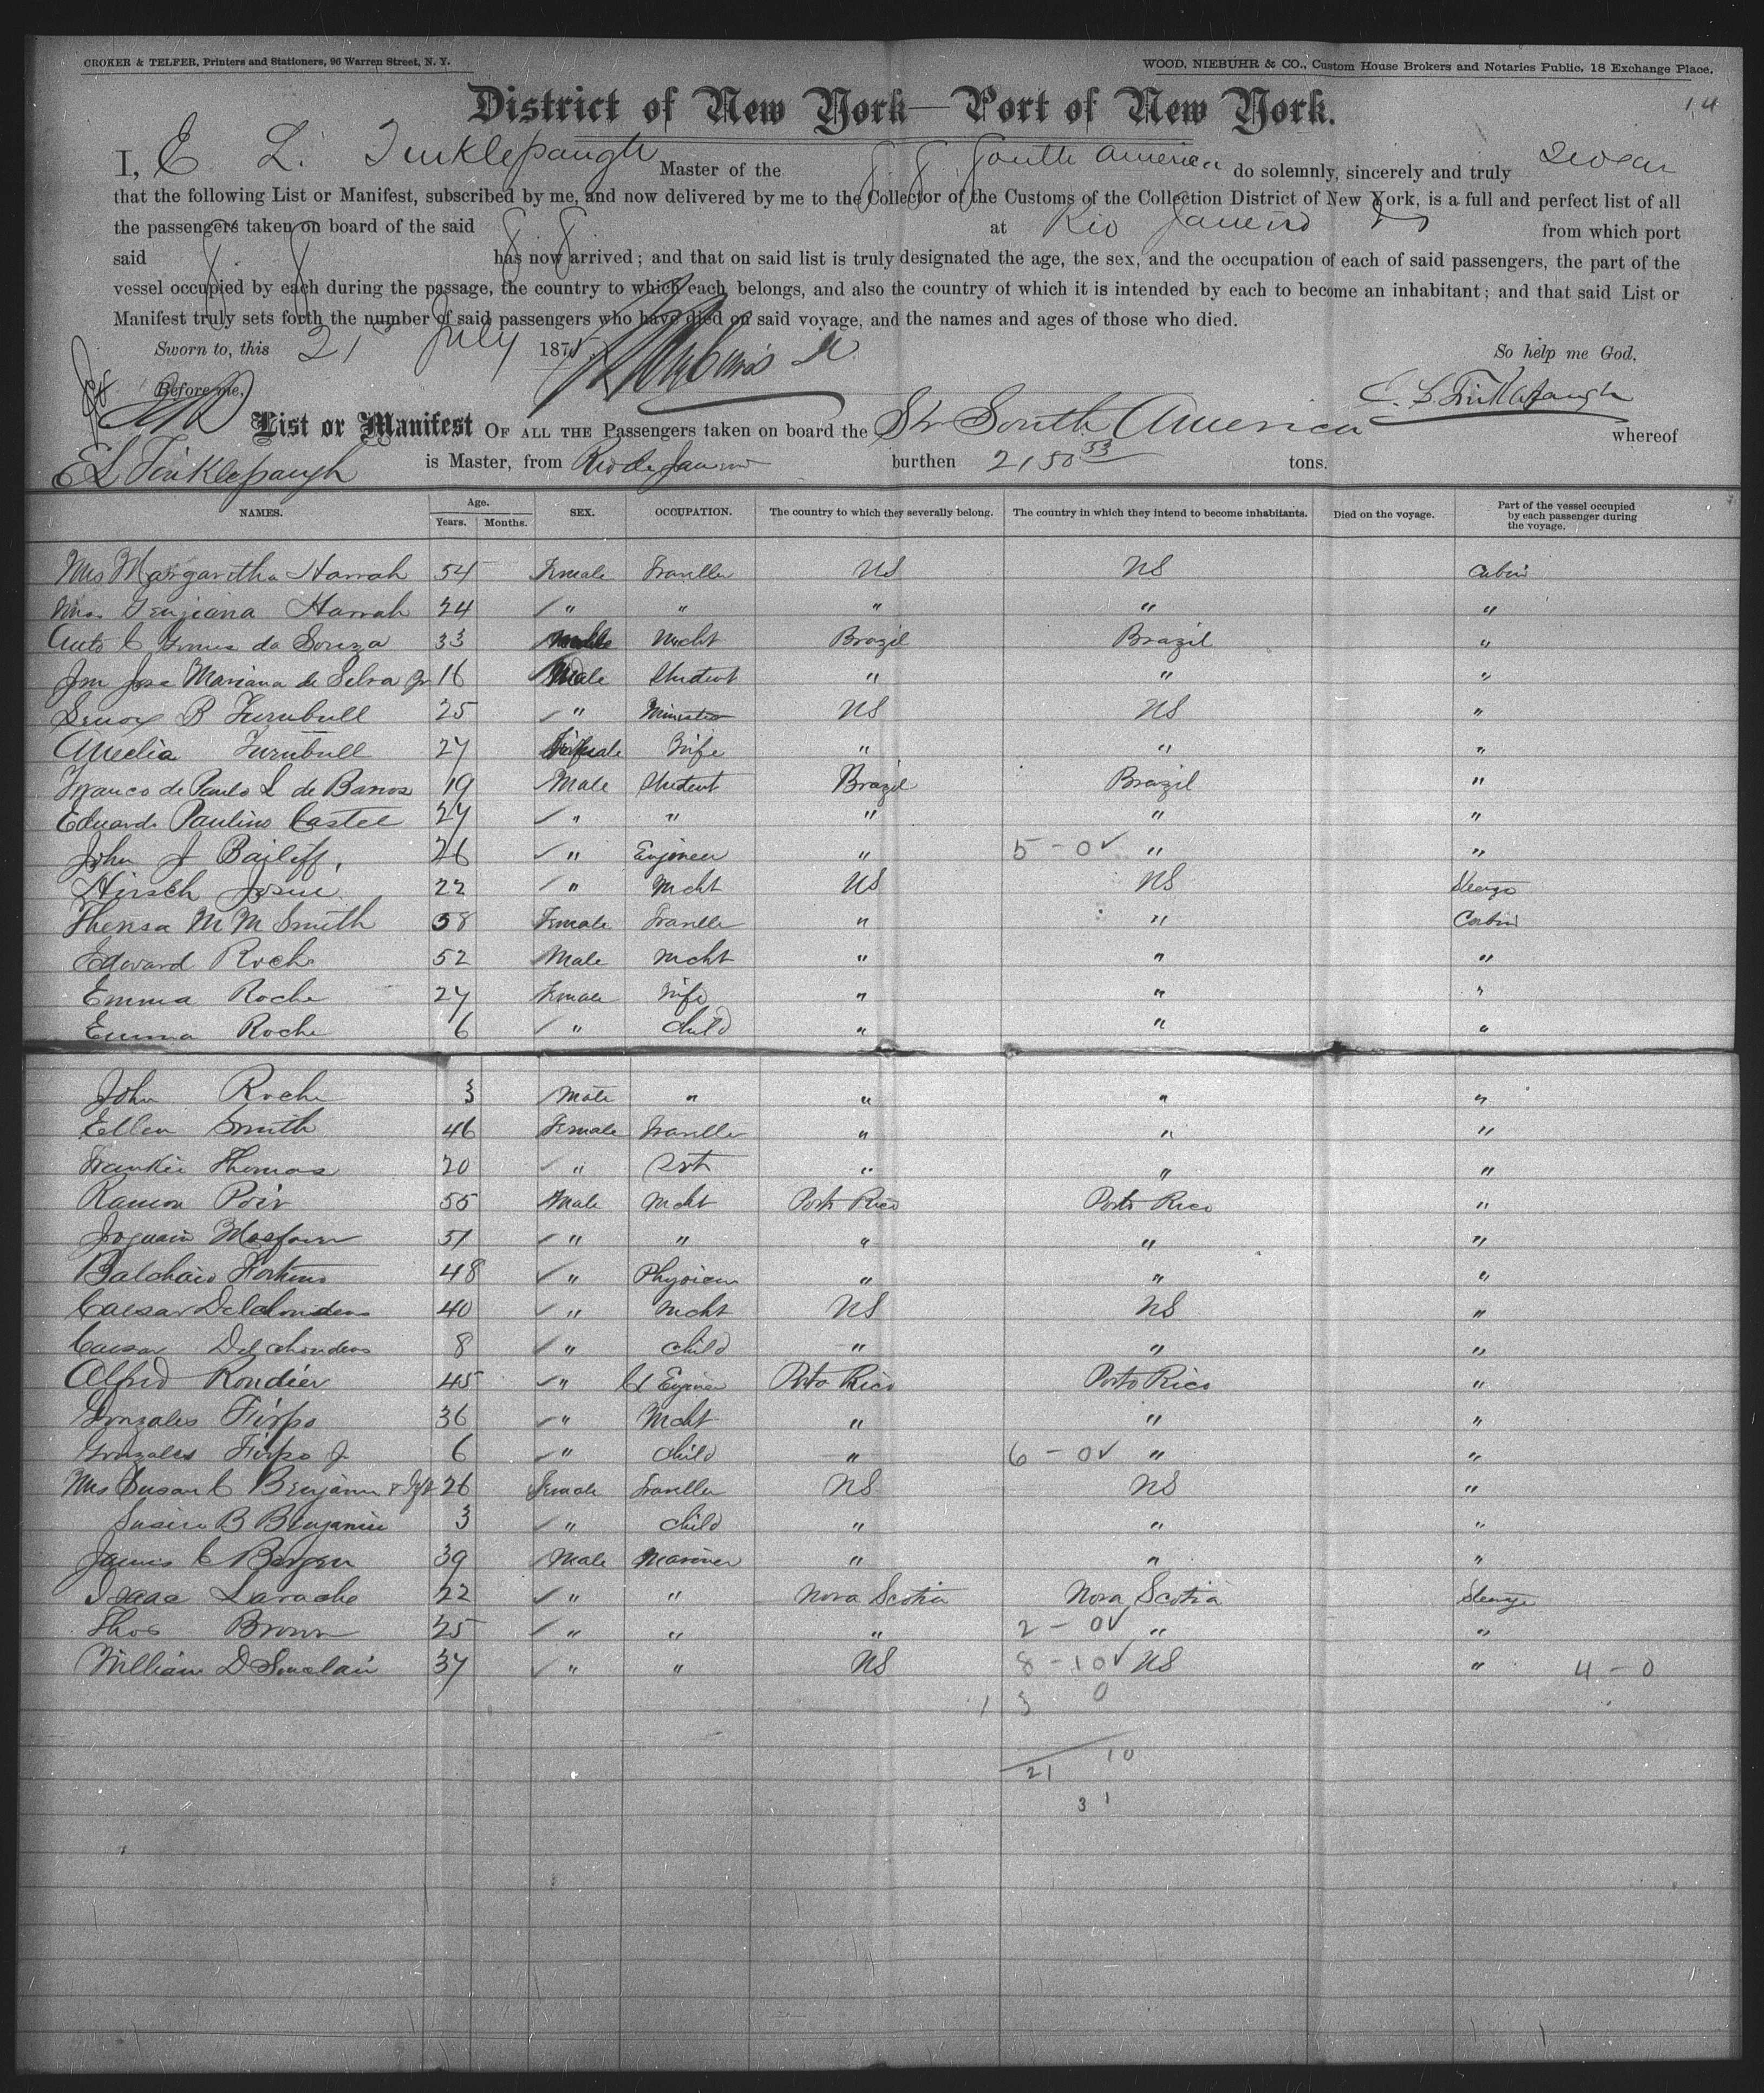 CROKER & TELFER, Printers and Stationers, 96 Warren Street, N. Y.
WOOD, NIEBUHR & CO., Custom House Brokers and Notaries Public, 18 Exchange Place.
District of New York—Port of New York.
14
I, E. L. Tinklepaugh Master of the S. S. South America do solemnly, sincerely and truly swear
that the following List or Manifest, subscribed by me, and now delivered by me to the Collector of the Customs of the Collection District of New York, is a full and perfect list of all
the passengers taken on board of the said S. S. at Rio Janeiro from which port
said S. S. has now arrived; and that on said list is truly designated the age, the sex, and the occupation of each of said passengers, the part of the
vessel occupied by each during the passage, the country to which each belongs, and also the country of which it is intended by each to become an inhabitant; and that said List or
Manifest truly sets forth the number of said passengers who have died on said voyage, and the names and ages of those who died.
Sworn to, this 21 July 1875 So help me God,
Before me, E. L. Tinklepaugh
List or Manifest OF ALL THE Passengers taken on board the Str South America whereof
E L Tinklepaugh is Master, from Rio de Janeiro burthen 2150 53 tons.
NAMES. Age. Years. Months. SEX. OCCUPATION. The country to which they severally belong. The country in which they intend to become inhabitants. Died on the voyage. Part of the vessel occupied by each passenger during the voyage.
Mrs Margaretha Harrah 54 Female Traveller US US Cabin
Georgiana Harrah 24 " " " " "
C Gomes da Souza 33 Male Mcht Brazil Brazil "
Jose Mariana de Selva Jr 16 Male Student " " "
Lenox B Turnbull 25 " Minister US US "
Amelia Turnbull 27 Female Wife " " "
Franco de Paulo L de Barros 19 Male Student Brazil Brazil "
Eduardo Paulino Castel 27 " " " " "
John J Bailiff 26 " Engineer " 5 - 0 " "
Hirsch Josue 22 " Mcht US US Steerage
Theresa M M Smith 58 Female Traveller " " Cabin
Edward Roche 52 Male Mcht " " "
Emma Roche 27 Female Wife " " "
Emma Roche 6 " Child " " "
John Roche 3 Male " " " "
Ellen Smith 46 Female Traveller " " "
Frankie Thomas 20 " " " "
Ramon Poir 55 Male Mcht Porto Rico Porto Rico "
Joquain 51 " " " " "
48 " Physician " " "
Caesar Delchondens 40 " Mcht US US "
Caesar Delchondens 8 " Child " " "
Alfred Rondier 45 " Engineer Porto Rico Porto Rico "
Gonzales Firpo 36 " Mcht " " "
Gonzales Firpo Jr 6 " Child " 6 - 0 " "
Mrs Susan C Benjamin & Inft 26 Female Traveller US US "
Susie B Benjamin 3 " Child " " "
James C Bergen 39 Male Mariner " " "
Isaac Larache 22 " " Nova Scotia Nova Scotia Steerage
Thos Brown 25 " " " 2 - 0 " "
William D Sinclair 37 " " US 8 - 10 US " 4 - 0
1 3 0
21 10
31